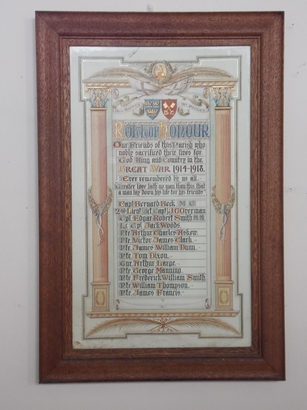 ROLL OF HONOUR
Our Friends of this Parish who
nobly sacrificed their lives for
God, King and Country in the
GREAT WAR, 1914-1918.
Ever remembered by us all
Greater love hath no man than this, that
a man lay down his life for his friends
Capt Bernard
2nd Lieut
Cpl Edgar Robert Smith M.M.
L. Cpl Jack Woods
Pte Arthur Charles Askew
Pte Victor James Clark
Pte James William Dunn
Pte Tom Dixon
Arthur
Pte George Manning
Pte Frederick William Smith
Pte William Thompson
Pte James Francis